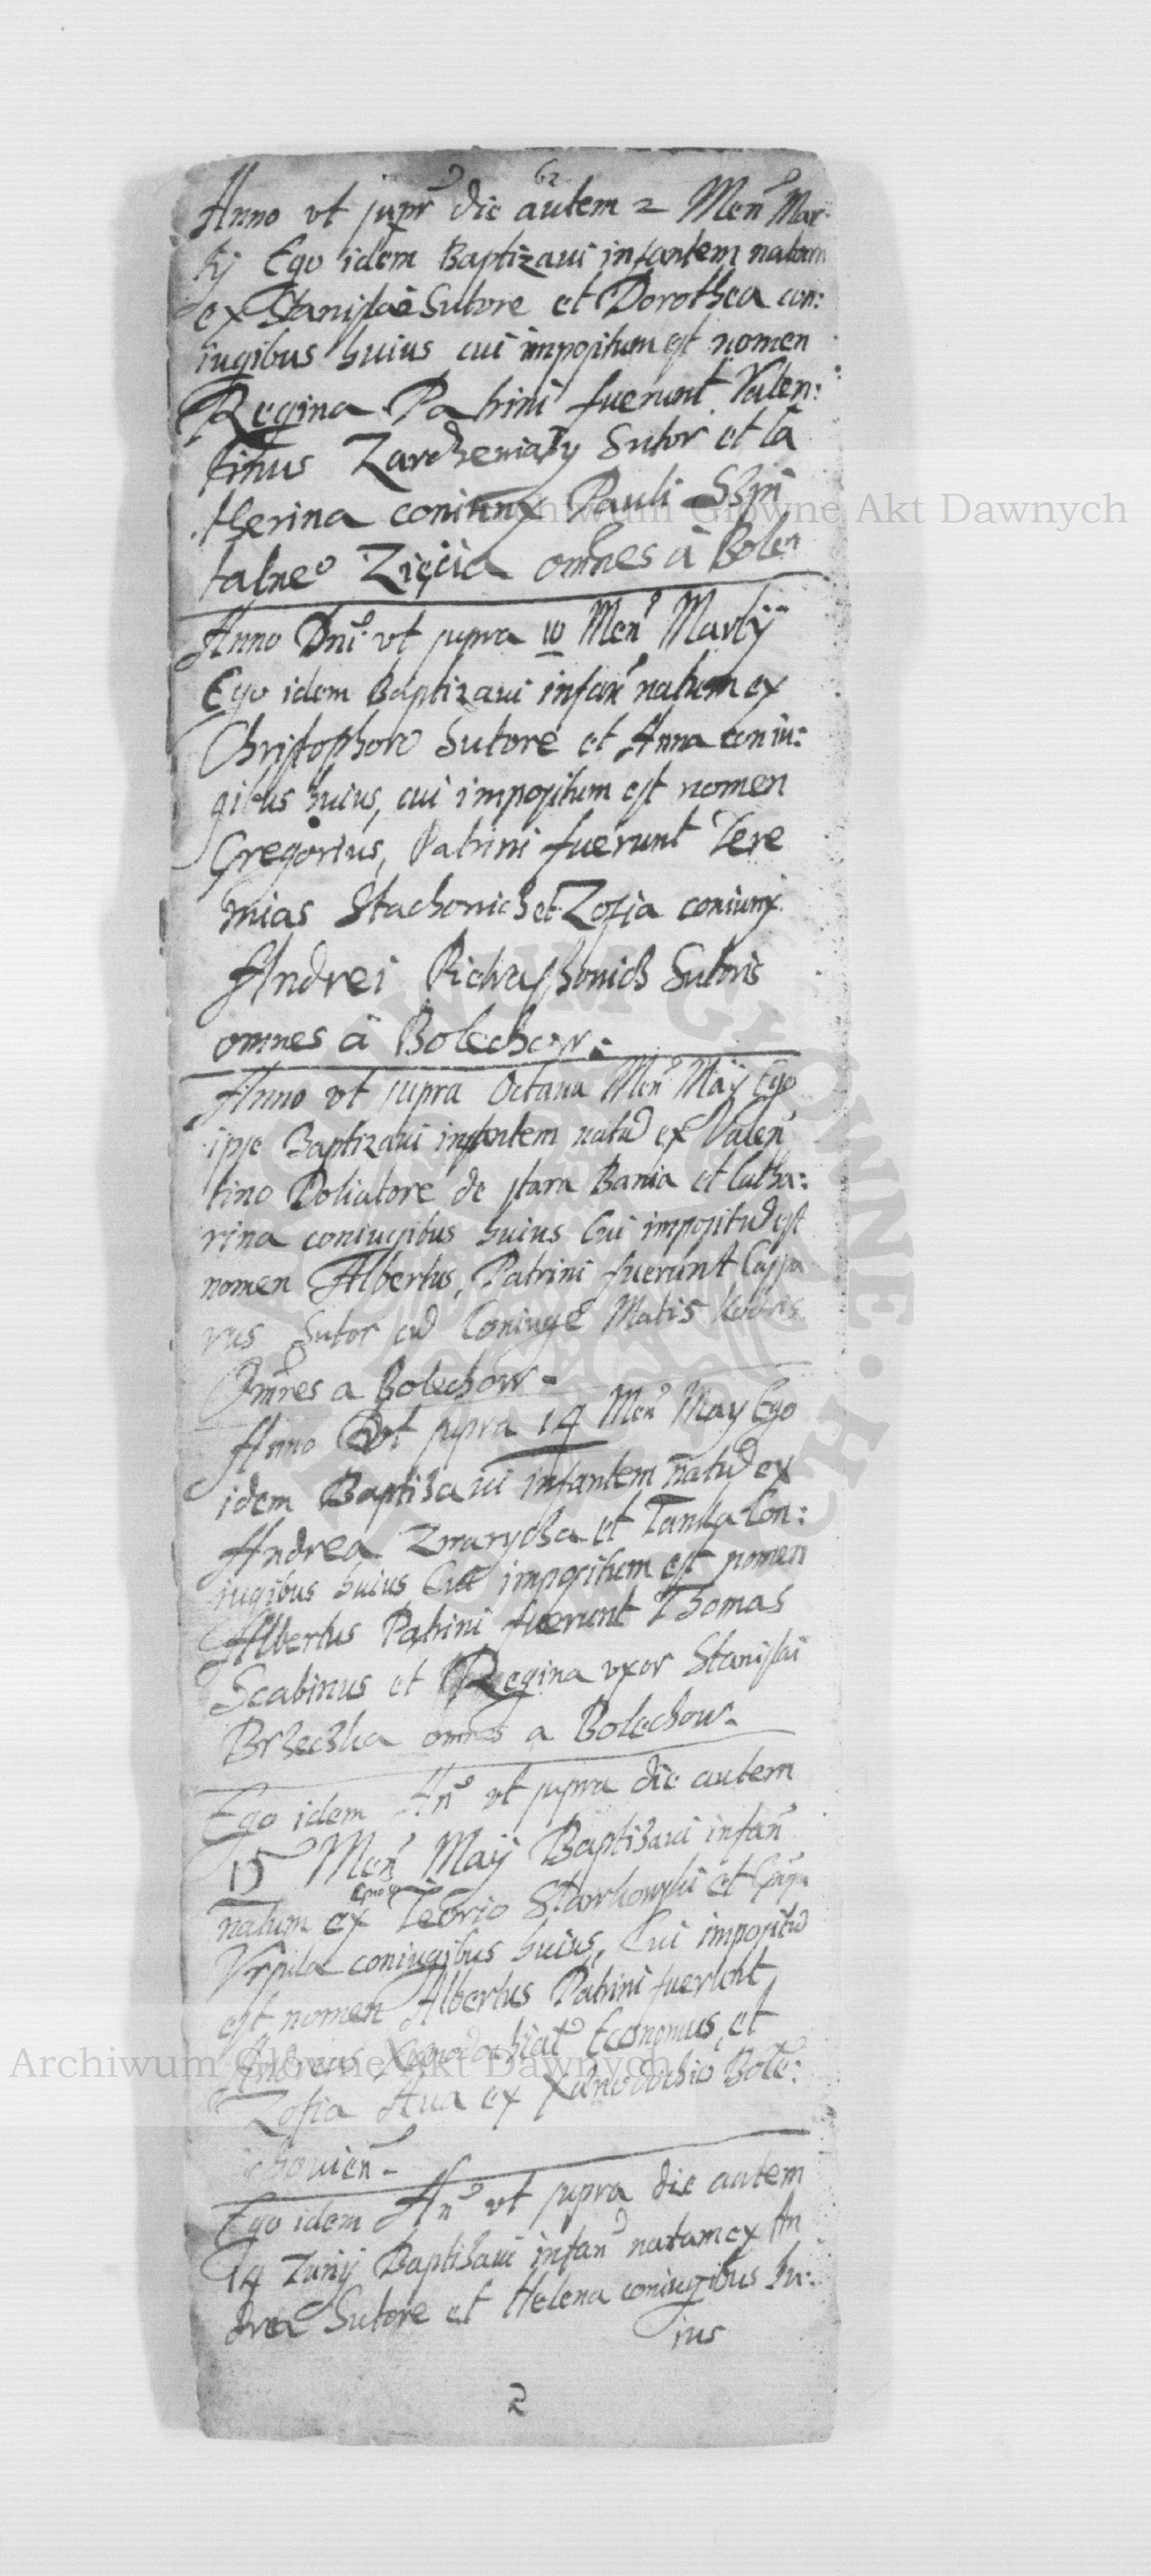 62
Anno vt supr die autem 2 Men Mar
tij Ego idem Baptizaui infantem natam
ex Stanislao Sutore et Dorothea con:
iugibus huius cui impositum est nomen
Regina Patrini fuerunt Valen:
tinus Sutor et Ca
therina coniunx Pauli Szpi
talne Zięcia omnes à Bolen
Anno Dni vt supra 10 Men Martij
Ego idem Baptizaui infan natum ex
Christophoro Sutore et Anna coniu:
gibus huius, cui impositum est nomen
Gregorius, Patrini fuerunt Iere
mias Stachonich et Zofia coniunx
Andrei Sutoris
omnes à Bolechow.
Anno vt supra Octaua Men Maij Ego
ipse Baptizaui infantem natu ex Valen
tino Doliatore de stara Bania et Catha:
rina coniugibus huius Cui impositu est
nomen Albertus, Patrini fuerunt Caspa
rus Sutor cu Coniuge Matis
Omnes a Bolechow
Anno Vt supra 14 Men May Ego
idem Baptisaui infantem natu ex
Andrea Zwarycha et Con:
iugibus huius Cui impositum est nomen
Albertus Patrini fuerunt Thomas
Scabinus et Regina vxor Stanislai
Brzechka omnes a Bolechow
Ego idem An vt supra die autem
15 Men Maij Baptisaui infan
natum ex et
Vrsula coniugibus huius, Cui impositu
est nomen Albertus Patrini fuerunt
Andreas Economus et
Zofia Aua ex Xenodochio Bole:
chouien
Ego idem An vt supra die autem
14 Iunij Baptisaui infan natam ex An
drea Sutore et Helena coniugibus hu:
ius
2
Archiwum Główne Akt Dawnych
Archiwum Główne Akt Dawnych